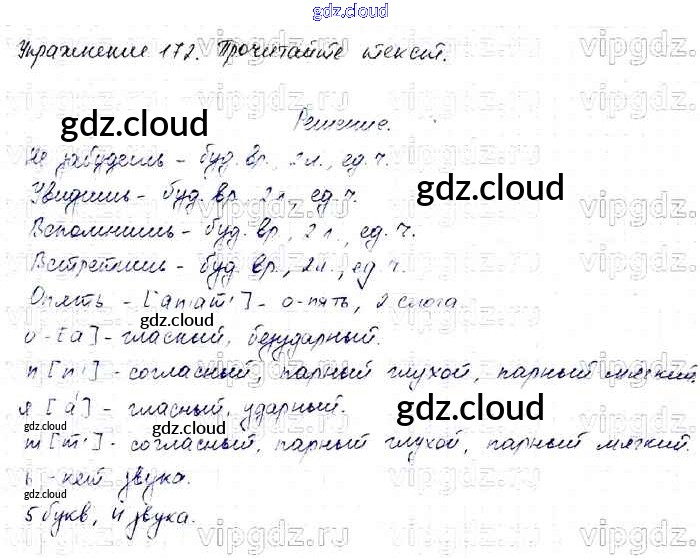 gdz.cloud
Упражнение 172. Прочитайте текст.
vipgdz.
gdz.cloud
Решение.
Не забудешь - буд. вр., 2 л., ед. ч.
Увидишь - буд. вр. 2 л., ед. ч.
gdz.cloud
Вспомнишь - буд. вр., 2 л., ед. ч.
Встретишь - буд. вр., 2 л., ед. ч.
Опять - [ап'ат'] - о-пять, 2 слога.
gdz.cloud
о - [а] - гласный, безударный.
п [п'] - согласный, парный глухой, парный мягкий
я [а́] - гласный, ударный.
gdz.cloud
gdz.cloud
gdz.cloud
т [т'] - согласный, парный глухой, парный мягкий.
ь - нет звука.
gdz.cloud
5 букв, 4 звука.
vipgdz.